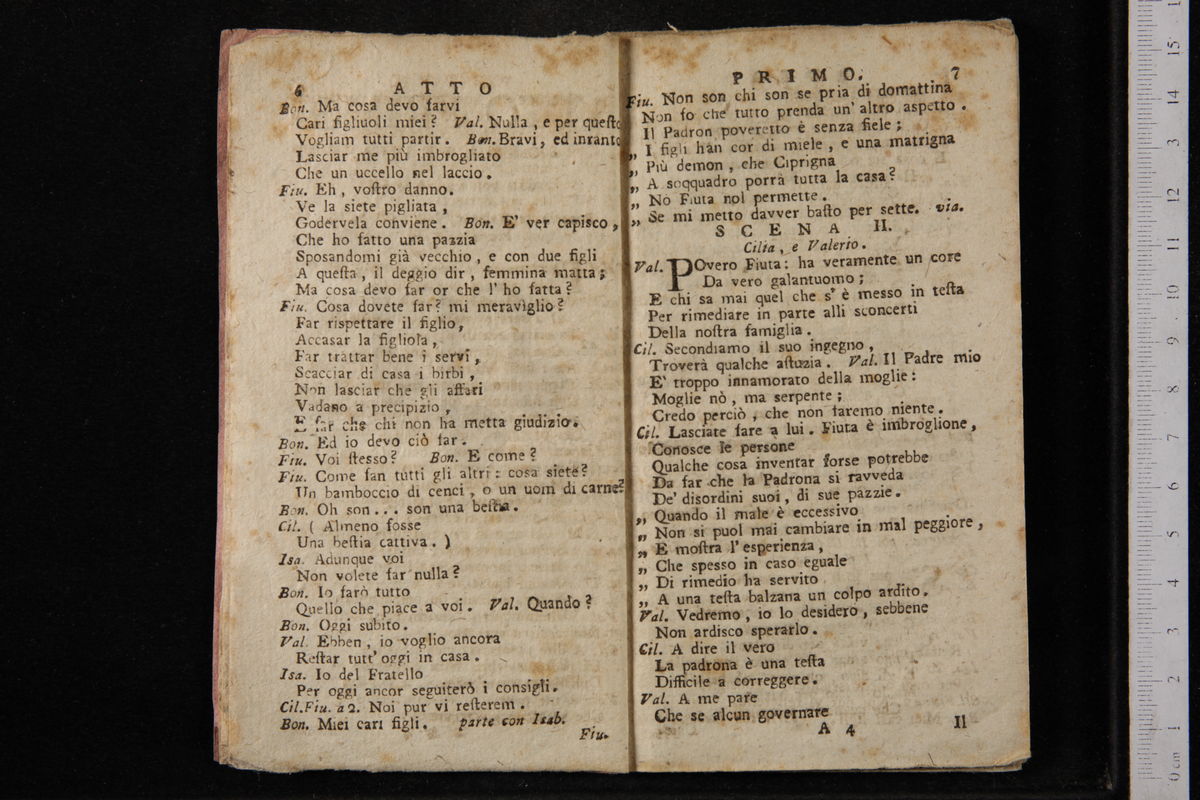 6 ATTO
Bon. Ma cosa devo farvi
Cari figliuoli miei? Val. Nulla, e per queſto
Vogliam tutti partir. Bon. Bravi, ed intanto
Laſciar me più imbrogliato
Che un uccello nel laccio.
Fiu. Eh, voſtro danno.
Ve la siete pigliata,
Godervela conviene. Bon. E' ver capisco,
Che ho fatto una pazzia
Sposandomi già vecchio, e con due figli
A queſta, il deggio dir, femmina matta;
Ma cosa devo far or che l'ho fatta?
Fiu. Cosa dovete far? mi meraviglio?
Far rispettare il figlio,
Accasar la figliola,
Far trattar bene i servi,
Scacciar di casa i birbi,
Non lasciar che gli affari
Vadano a precipizio,
E far che chi non ha metta giudizio.
Bon. Ed io devo ciò far.
Fiu. Voi ſtesso? Bon. E come?
Fiu. Come fan tutti gli altri: cosa siete?
Un bamboccio di cenci, o un uom di carne?
Bon. Oh son... son una beſtia.
Cil. ( Almeno fosse
Una beſtia cattiva. )
Isa. Adunque voi
Non volete far nulla?
Bon. Io farò tutto
Quello che piace a voi. Val. Quando?
Bon. Oggi subito.
Val. Ebben, io voglio ancora
Reſtar tutt'oggi in casa.
Isa. Io del Fratello
Per oggi ancor seguiterò i consigli.
Cil. Fiu. a 2. Noi pur vi reſterem.
Bon. Miei cari figli. parte con Isab.
Fiu.
PRIMO. 7
Fiu. Non son chi son se pria di domattina
Non fo che tutto prenda un'altro aspetto.
Il Padron poveretto è senza fiele;
„ I figli han cor di miele, e una matrigna
„ Più demon, che Ciprigna
„ A soqquadro porrà tutta la casa?
„ Nò Fiuta nol permette.
„ Se mi metto davver baſto per sette. via.
SCENA II.
Cilia, e Valerio.
Val. POvero Fiuta: ha veramente un core
Da vero galantuomo;
E chi sa mai quel che s'è messo in teſta
Per rimediare in parte alli sconcerti
Della noſtra famiglia.
Cil. Secondiamo il suo ingegno,
Troverà qualche aſtuzia. Val. Il Padre mio
E' troppo innamorato della moglie:
Moglie nò, ma serpente;
Credo perciò, che non faremo niente.
Cil. Lasciate fare a lui. Fiuta è imbroglione,
Conosce le persone
Qualche cosa inventar forse potrebbe
Da far che la Padrona si ravveda
De' disordini suoi, di sue pazzie.
„ Quando il male è eccessivo
„ Non si puol mai cambiare in mal peggiore,
„ E moſtra l'esperienza,
„ Che spesso in caso eguale
„ Di rimedio ha servito
„ A una teſta balzana un colpo ardito.
Val. Vedremo, io lo desidero, sebbene
Non ardisco sperarlo.
Cil. A dire il vero
La padrona è una teſta
Difficile a correggere.
Val. A me pare
Che se alcun governare
A 4 Il
0 cm 1 2 3 4 5 6 7 8 9 10 11 12 13 14 15